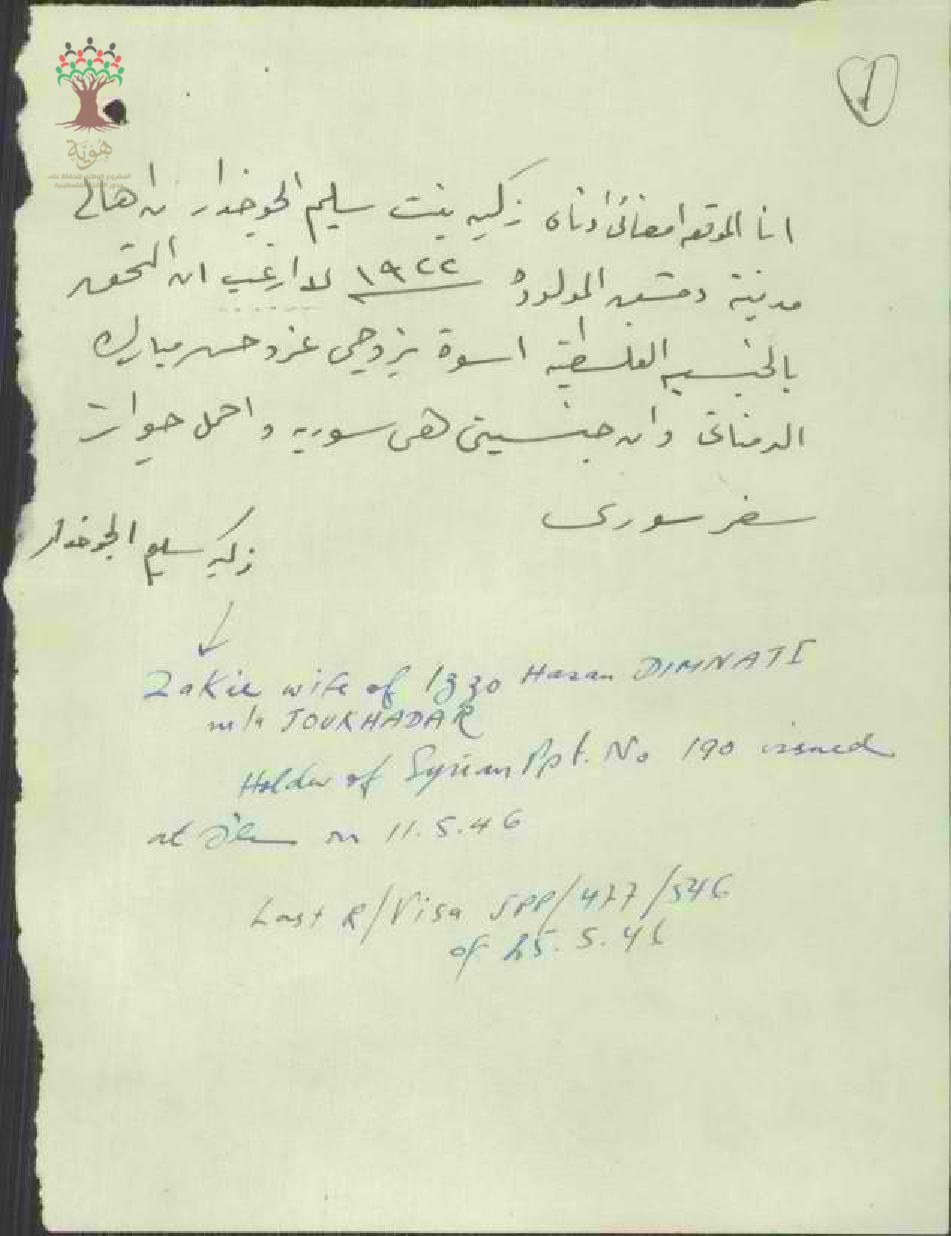 1
هوية
انا الموقعه امضائي ادناه زكيه بنت سليم الجوخدار من اهالي
مدينة دمشق المولودة ١٩٢٢ لا ارغب ان التحق
بالجنسيه الفلسطينيه اسوة بزوجي عزو حسن مبارك
الدمناتي وان جنسيتي هي سوريه واحمل جوازت
سفر سوري
زكيه سليم الجوخدار
Zakie wife of Izzo Hasan DIMNATI
n/a JOUKHADAR
Holder of Syrian Ppt. No 190 issued
at on 11.5.46
Last R/Visa JPP/477/546
of 25.5.46